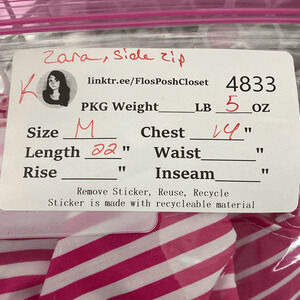 Zara, Side Zip
K
linktr.ee/FlosPoshCloset 4833
PKG Weight____LB 5 OZ
Size M Chest 14"
Length 22" Waist____"
Rise____" Inseam____"
Remove Sticker, Reuse, Recycle
Sticker is made with recycleable material